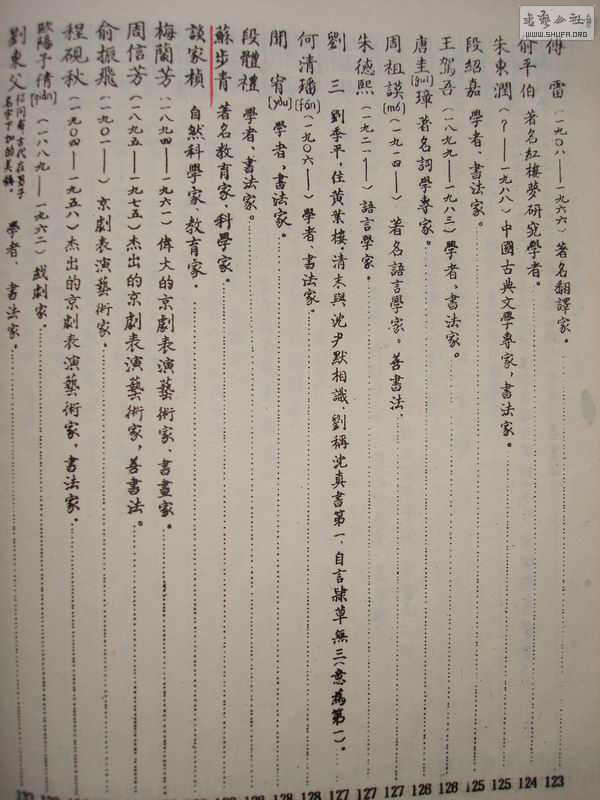 書藝公社
www.SHUFA.ORG
傅 雷 (一九〇八——一九六六) 著名翻譯家。 123
俞平伯 著名紅樓夢研究學者。 124
朱東潤 (?——一九八八) 中國古典文學專家,書法家。 125
段紹嘉 學者、書法家。 125
王駕吾 (一八九九——一九八三) 學者、書法家。 126
唐圭[guī]璋 著名詞學專家。 126
周祖謨[mó] (一九一四——) 著名語言學家。善書法、 127
朱德熙 (一九二一——) 語言學家。 127
劉 三 劉季平,住黃葉樓,清末與沈尹默相識、劉稱沈真書第一、自言隸草無三(意為第一)。 127
何清璠[fán] (一九〇六——) 學者、書法家。 128
聞 宥[yòu] 學者,書法家。 128
段體禮 學者、書法家。 128
蘇步青 著名教育家、科學家。
談家楨 自然科學家 教育家。
梅蘭芳 (一八九四——一九六一) 偉大的京劇表演藝術家、書畫家。
周信芳 (一八九五——一九七五) 杰出的京劇表演藝術家,善書法。
俞振飛 (一九〇一——) 京劇表演藝術家。
程硯秋 (一九〇四——一九五八) 杰出的京劇表演藝術家、書法家。
歐陽予倩[qiàn] (一八八九——一九六二) 戲劇家。
劉東父 學者、書法家。